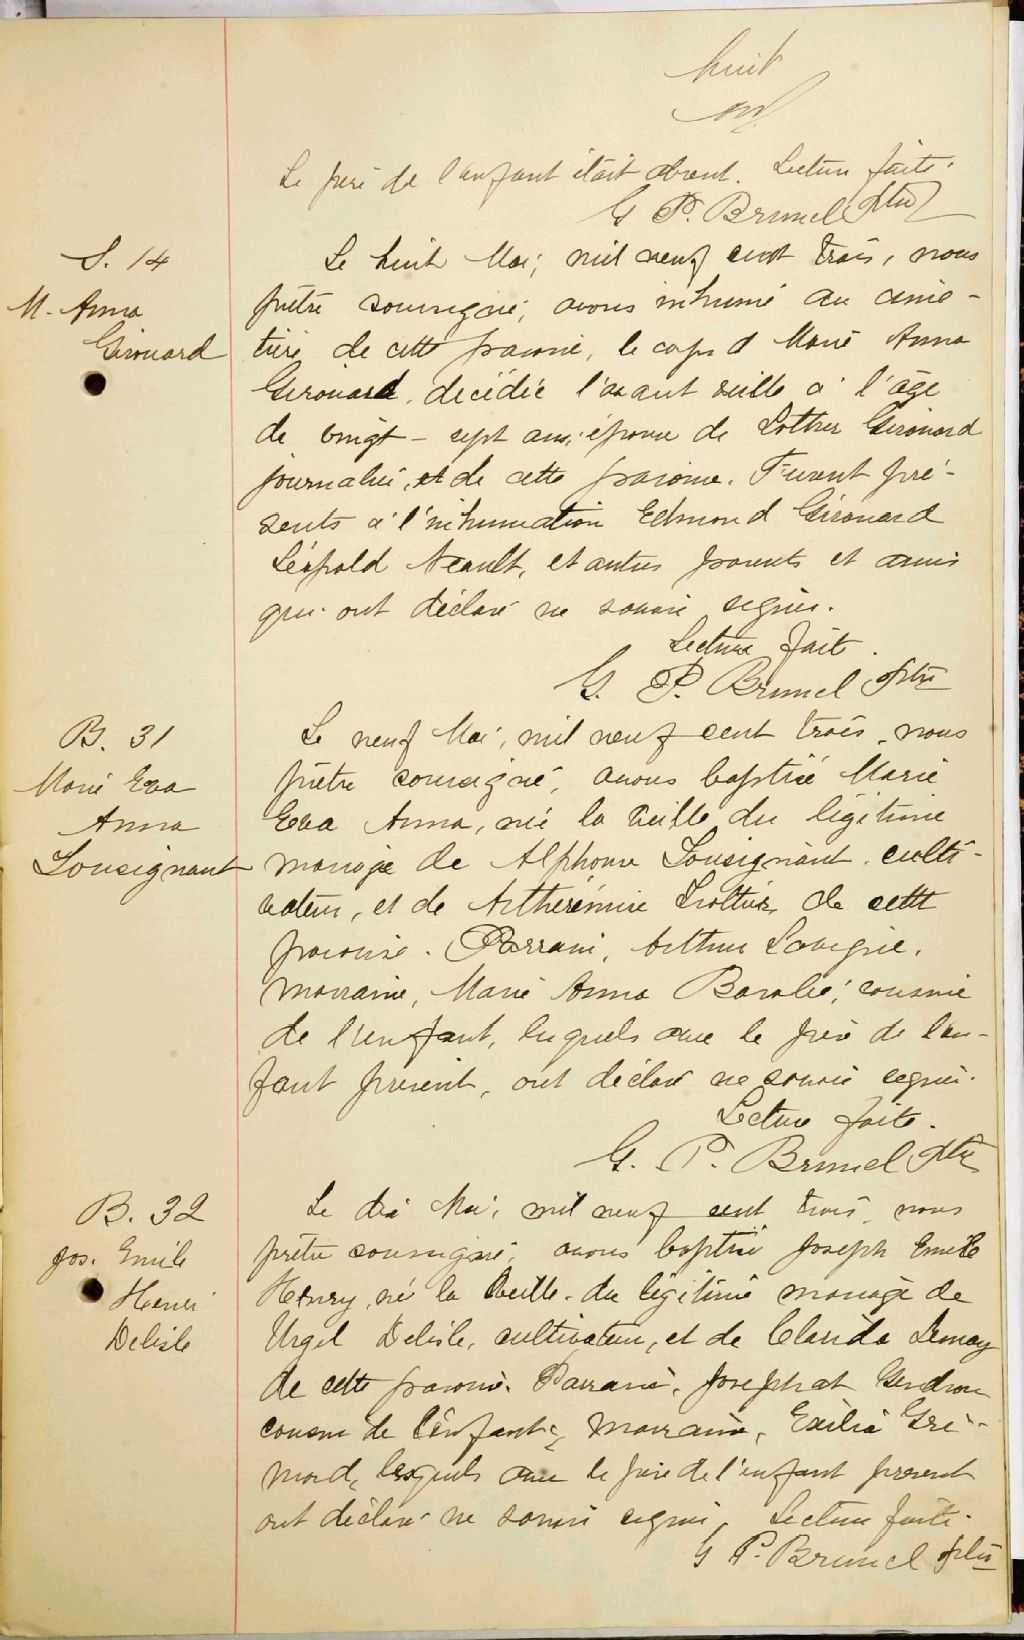 huit
Le père de l'enfant était absent. Lecture faite.
G. P. Brunel Ptre
S. 14
M. Anna
Girouard
Le huit Mai, mil neuf cent trois, nous
prêtre soussigné, avons inhumé au cime-
tière de cette paroisse, le corps d Marie Anna
Girouard, décédée l'avant veille à l'âge
de vingt-sept ans, épouse de Girouard
journalier, et de cette paroisse. Furent pré-
sents à l'inhumation Edmond Girouard
Léopold Neault, et autres parents et amis
qui ont déclaré ne savoir signer.
Lecture faite.
G. P. Brunel Ptre
B. 31
Marie Eva
Anna
Lousignant
Le neuf Mai, mil neuf cent trois, nous
prêtre soussigné, avons baptisé Marie
Eva Anna, née la veille du légitime
mariage de Alphonse Lousignant, culti-
vateur, et de de cette
paroisse. Parrain, Arthur Lavigne,
marraine, Marie Anna cousine
de l'enfant, lesquels avec le père de l'en-
fant présent, ont déclaré ne savoir signer.
Lecture faite.
G. P. Brunel Ptre
B. 32
Jos. Emile
Henri
Delisle
Le dix Mai, mil neuf cent trois, nous
prêtre soussigné, avons baptisé Joseph Emile
Henry, né la veille du légitime mariage de
Urgel Delisle, cultivateur, et de Clarida Lemay
de cette paroisse. Parrain, Josephat Gendron
cousin de l'enfant, marraine, Exilia Gri-
mard, lesquels avec le père de l'enfant présent
ont déclaré ne savoir signer. Lecture faite.
G. P. Brunel ptre